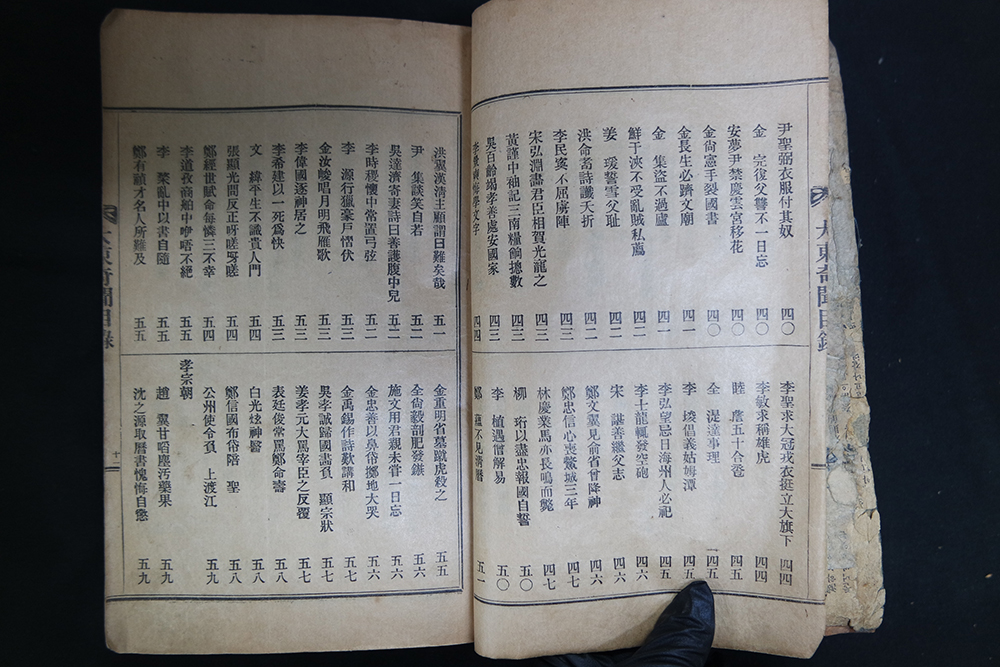 大東奇聞目錄
尹聖弼衣服付其奴 四〇
金 完復父讐不一日忘 四〇
安夢尹禁慶雲宮移花 四〇
金尙憲手裂國書 四〇
金長生必躋文廟 四一
金 集盜不過廬 四一
鮮于浹不受亂賊私薦 四二
姜 瑗誓雪父耻 四二
洪命耉詩讖夭折 四二
李民寏不屈虜陣 四三
宋弘淵畵君臣相賀光龍之 四三
黃謹中袖記三南糧餉摠數 四三
吳百齡竭孝善處安國家 四三
學文字 四四
李聖求大冠戎衣挺立大旗下 四四
李敏求稱雄虎 四四
睦 詹五十合巹 四五
全 湜達事理 四五
李 埈倡義姑姆潭 四五
李弘望忌日海州人必祀 四五
李士龍輒發空砲 四六
宋 諶善繼父志 四六
鄭文翼見前省曾降神 四六
鄭忠信心喪鰲城三年 四七
林慶業馬亦長鳴而斃 四七
柳 珩以盡忠報國自誓 五〇
李 植遇僧解易 五〇
鄭 蘊不見淸曆 五一
洪翼漢淸主顧謂曰難矣哉 五一
尹 集談笑自若 五一
吳達濟寄妻詩曰善護腹中兒 五二
李時稷懷中常置弓弦 五二
李 源行獵豪戶慴伏 五三
金汝峻唱月明飛雁歌 五三
李偉國逐神居之 五三
李希建以一死爲快 五三
文 緯平生不識貴人門 五四
張顯光問反正呀嗟呀嗟 五四
鄭經世賦命每憐三不幸 五四
李道孜商船中咿唔不絕 五五
李 榘亂中以書自隨 五五
鄭有顧才名人所難及 五五
金重明省墓蹴虎殺之 五五
全尙毅剖肥發鏃 五六
施文用君親未嘗一日忘 五六
金忠善以鼻俗擲地大哭 五六
金禹錫作詩歎講和 五七
吳孝誠歸國畵貢 顯宗狀 五七
姜孝元大罵宰臣之反覆 五七
表廷俊常罵鄭命壽 五八
白光炫神醫 五八
鄭信國布帒陪 聖 五八
公州使令負 上渡江 五九
孝宗朝
趙 翼甘啗塵汚藥果 五九
沈之源取曆書愧悔自懲 五九
大東奇聞目錄
十二